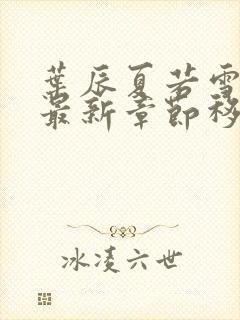 葉辰夏若雪
最新章節移
冰凌六世